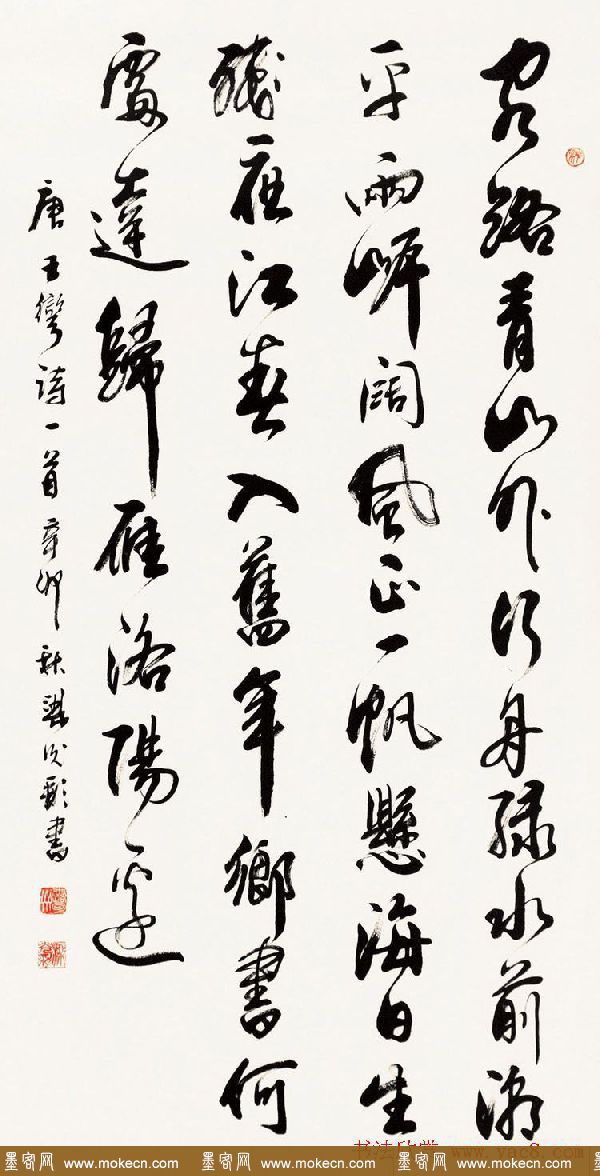 客路青山外行舟綠水前潮
平兩岸闊風正一帆懸海日生
殘夜江春入舊年鄉書何
處達歸雁洛陽邊
唐王灣詩一首 辛卯秋 書
书法欣赏 www.yac8.com
墨客网 www.mokecn.com 墨客网 www.mokecn.com 墨客网 www.mokecn.com 墨客网 www.mokecn.com